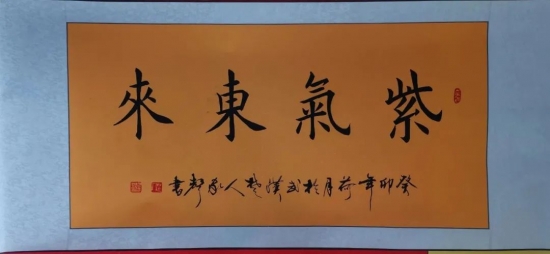 紫氣東來
癸卯年荷月於武漢楚人永軍書